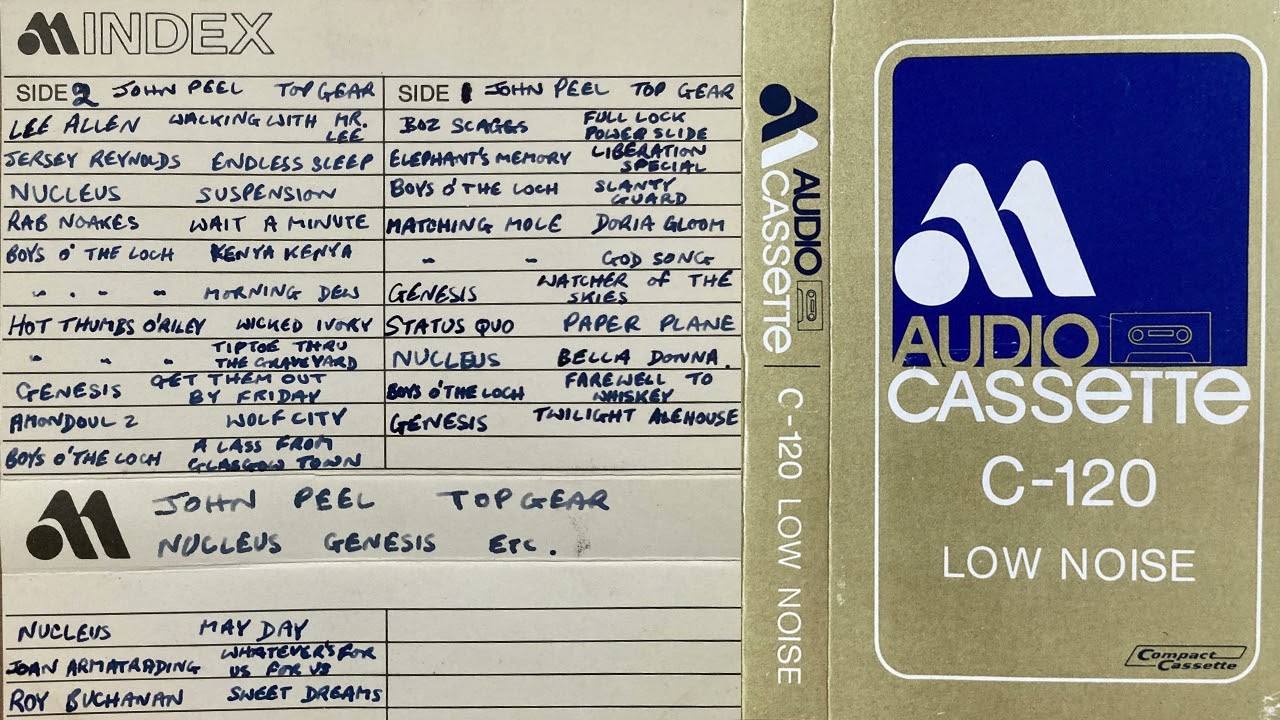 INDEX
SIDE 2 JOHN PEEL TOP GEAR
LEE ALLEN WALKING WITH MR. LEE
JERSEY REYNOLDS ENDLESS SLEEP
NUCLEUS SUSPENSION
RAB NOAKES WAIT A MINUTE
BOYS O' THE LOCH KENYA KENYA
" . " " MORNING DEW
HOT THUMBS O'RILEY WICKED IVORY
" " " TIPTOE THRU THE GRAVEYARD
GENESIS GET THEM OUT BY FRIDAY
AMONDOUL 2 WOLF CITY
BOYS O'THE LOCH A LASS FROM GLASGOW TOWN
SIDE 1 JOHN PEEL TOP GEAR
BOZ SCAGGS FULL LOCK POWER SLIDE
ELEPHANT'S MEMORY LIBERATION SPECIAL
BOYS O'THE LOCH SLANTY GUARD
MATCHING MOLE DORIA GLOOM
" " GOD SONG
GENESIS WATCHER of THE SKIES
STATUS QUO PAPER PLANE
NUCLEUS BELLA DONNA.
BOYS O'THE LOCH FAREWELL TO WHISKEY
GENESIS TWILIGHT ALEHOUSE
JOHN PEEL TOP GEAR
NUCLEUS GENESIS ETC.
NUCLEUS MAY DAY
JOAN ARMATRADING WHATEVER'S FOR US FOR US
ROY BUCHANAN SWEET DREAMS
AUDIO
CASSETTE
C-120 LOW NOISE
AUDIO
CASSETTE
C-120
LOW NOISE
Compact
Cassette